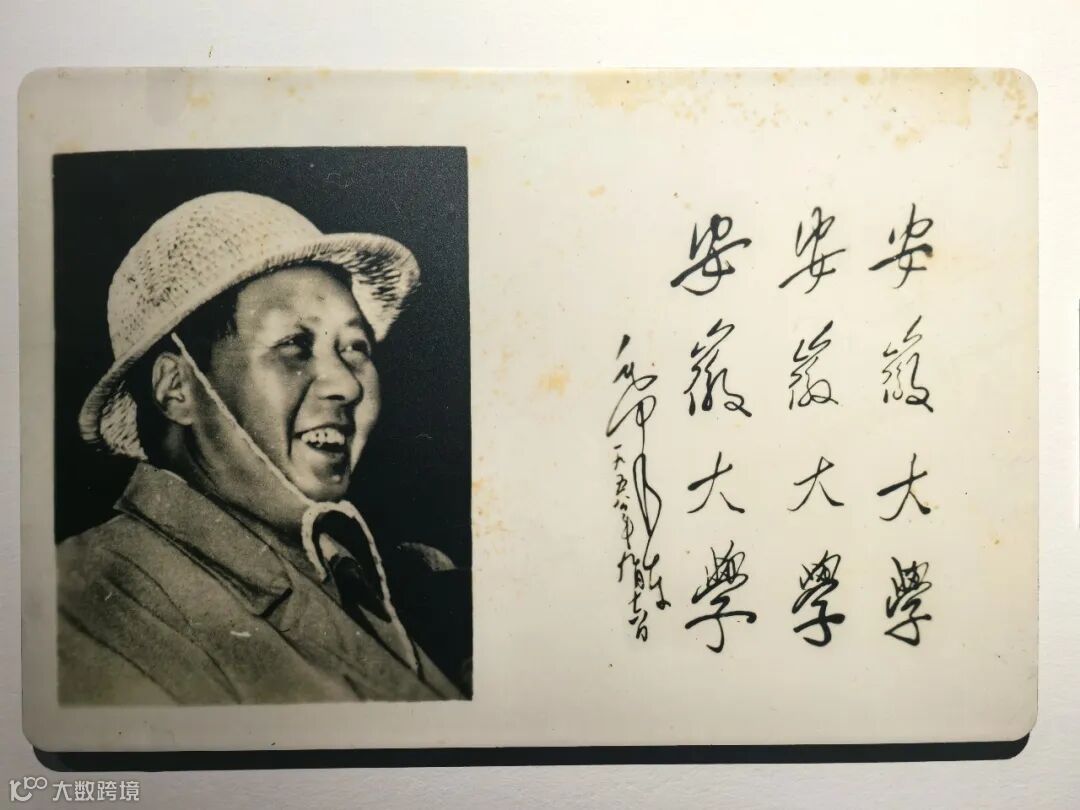 安徽大學
安徽大學
安徽大學
毛泽东
一九五八年九月十六日
大数跨境